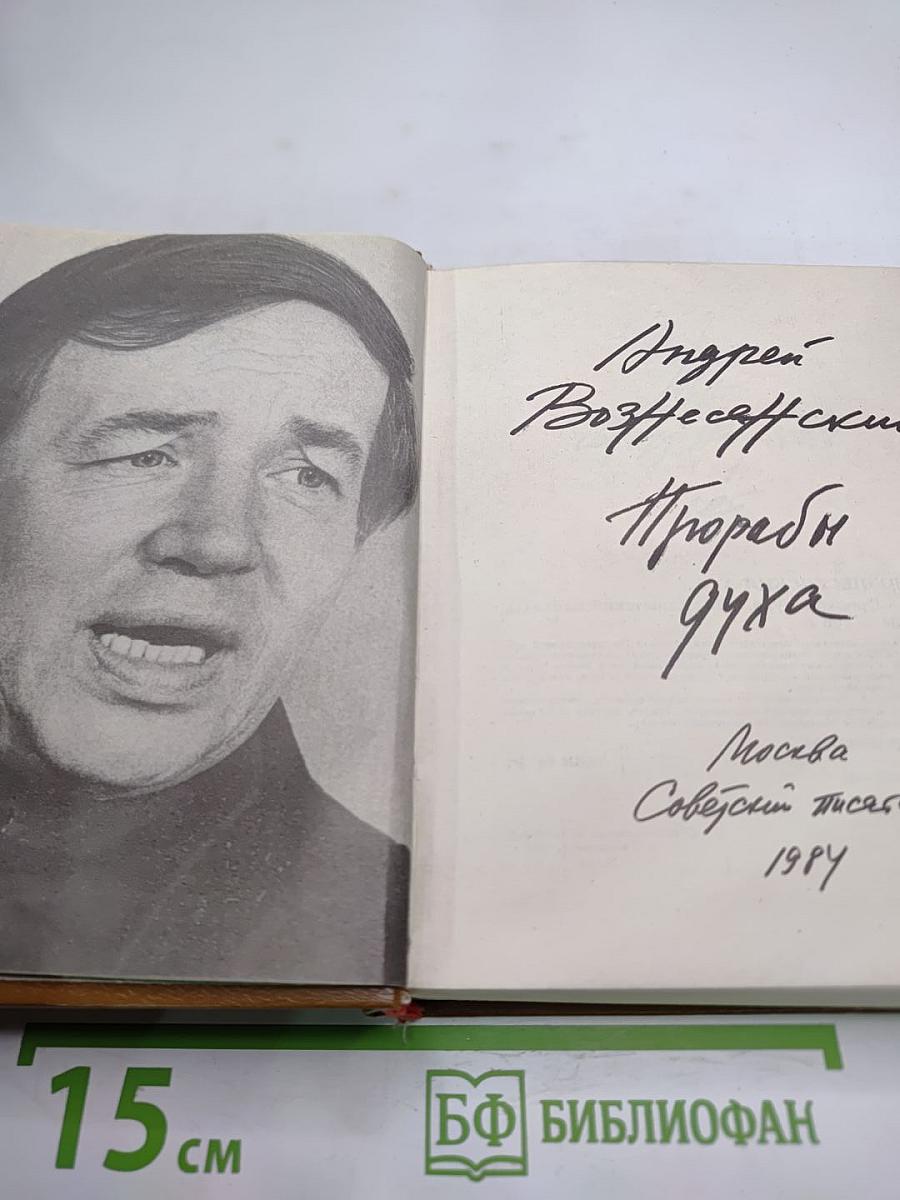 Андрей
Вознесенски
Прорабы
духа
Москва
Советский писат
1984
15 см
БФ БИБЛИОФАН